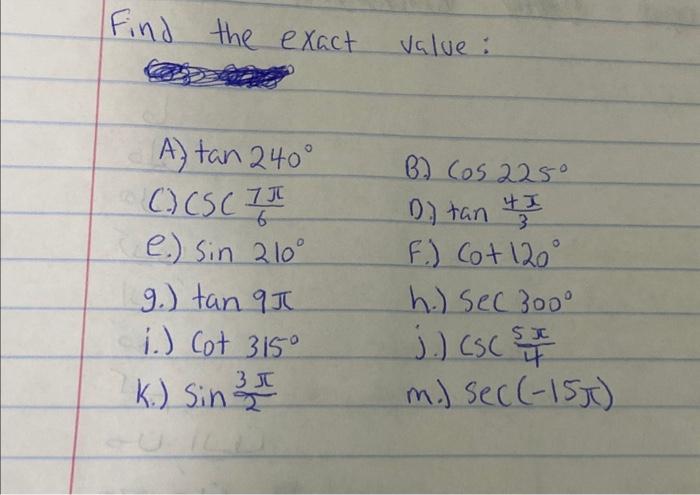 Find the exact value:
A) tan 240° B) Cos 225°
C.) CSC 7π/6 D.) tan 4π/3
e.) Sin 210° F.) Cot 120°
g.) tan 9π h.) Sec 300°
i.) Cot 315° j.) CSC 5π/4
K.) Sin 3π/2 m.) Sec(-15π)